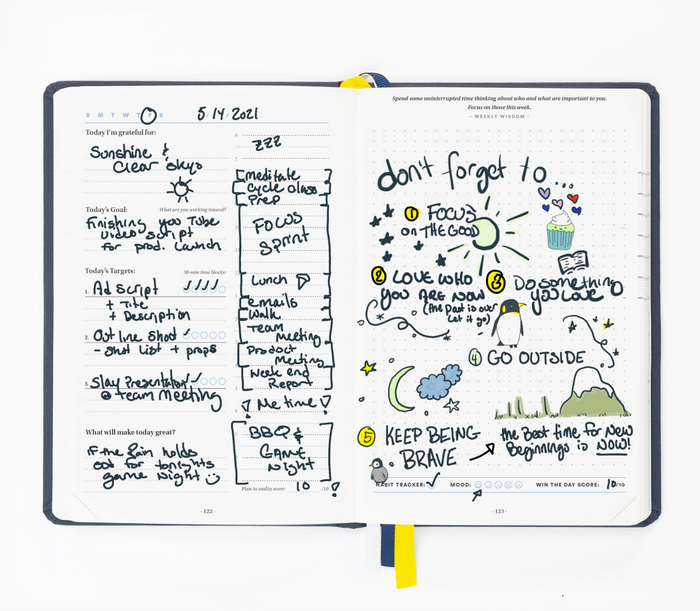 S M T W T F S
5/14/2021
Today I'm grateful for:
Sunshine &
Clear Skys
Today's Goal:
What are you working toward?
Finishing you Tube
video script
for prod. Launch
Today's Targets:
30-min time blocks:
1. Ad script
+ Title
+ Description
2. Outline Shoot
- Shot List + props
3. Slay Presentation
@ team Meeting
What will make today great?
if the Rain holds
out for tonights
game night
6
zzz
7
meditate
Cycle class
Prep
Focus
Sprint
Lunch
emails
Walk
Team
Meeting
Product
Meeting
Week end
Report
Me time
BBQ &
Game
Night
Plan to reality score: 10 /10
- 122 -
Spend some uninterrupted time thinking about who and what are important to you.
Focus on those this week.
- WEEKLY WISDOM -
don't forget to...
1 FOCUS
on THE GOOD
2 LOVE WHO
you ARE NOW
(the past is over
Let it go)
3 Do something
you LOVE
4 GO OUTSIDE
5 KEEP BEING
BRAVE
the Best time for NEW
Beginnings is NOW!
HABIT TRACKER: MOOD: WIN THE DAY SCORE: 10/10
- 123 -